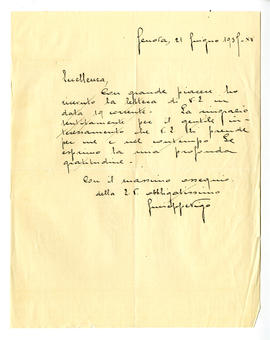 Genova, 21 Giugno 1937-XV
Eccellenza,
Con grande piacere ho
ricevuto la lettera di V.E. in
data 19 corrente. La ringrazio
sentitamente per il gentile in-
teressamento che V.E. prende
per me e nel contempo Le
esprimo la mia profonda
gratitudine.
Con il massimo ossequio
della E.V. obbligatissimo